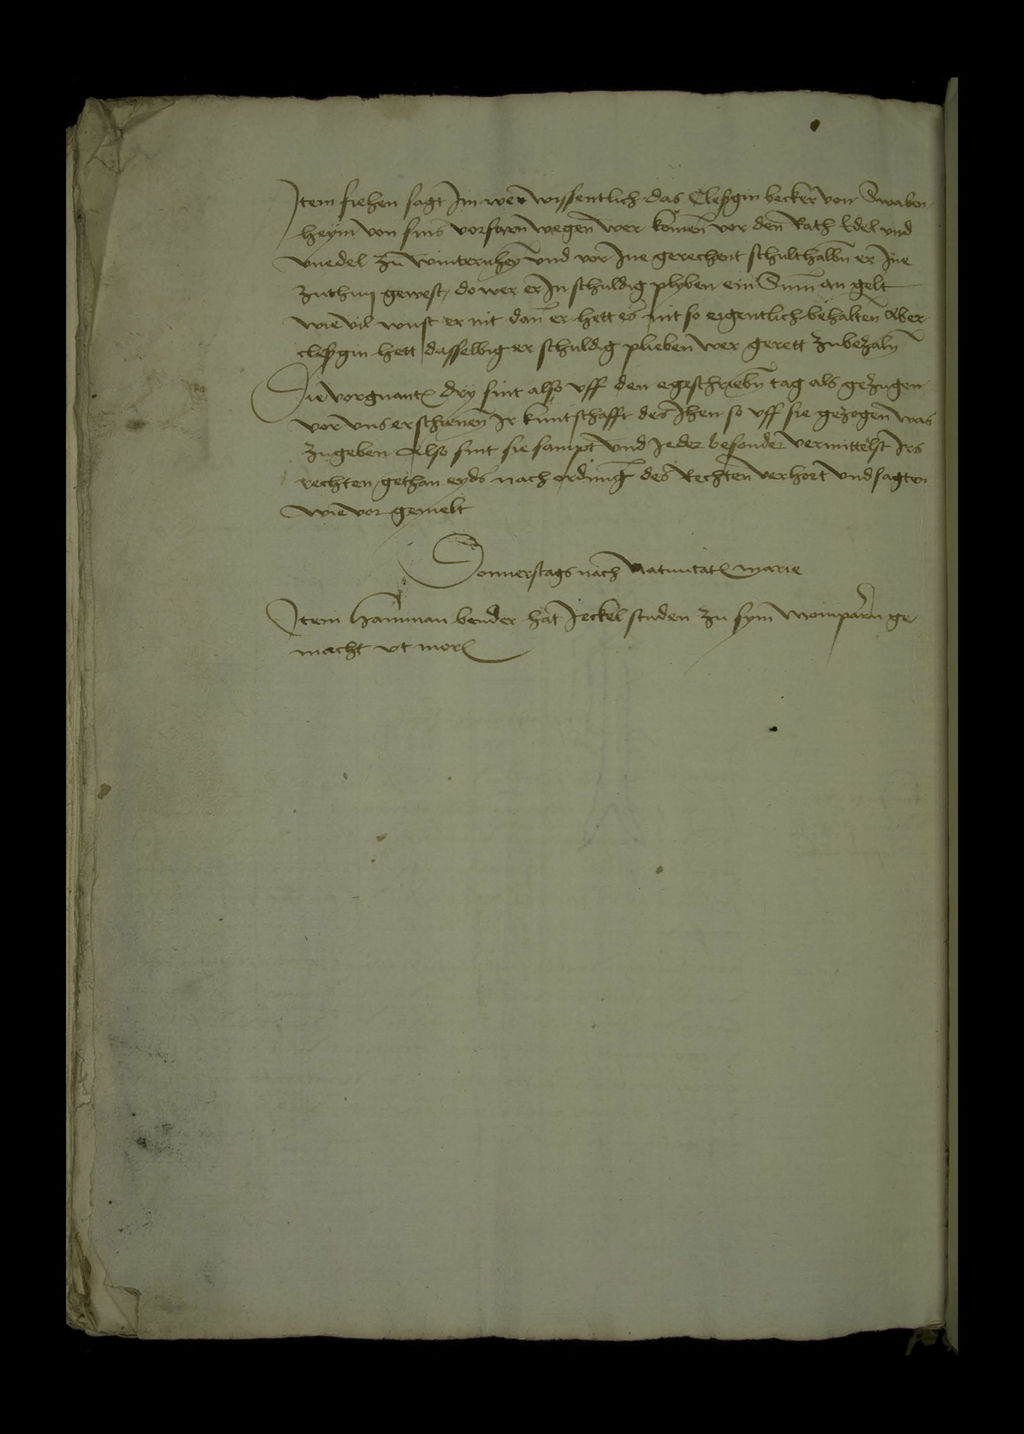 Item siehen sagt Im wer wissentlich das Cleßgin becker von Swaben
heym von sins vorfarn wegen wer komen vor den Rath Edel und
vnedel zu winternheym vnd vor Ine gerechent schulthalbn er Ine
zuthun gewest, do wer er In schuldig plyben ein Sum an gelt
wie vil wust er nit dan er hett es nit so eigentlich behalten Aber
cleßgin hett dasselbig er schuldig plieben wer gerett zubezaln
Die vorgnant dry sint also vff den egeschriebn tag als gezugen
vor vns erschienen Ir kuntschafft des Ihen so vff sie gezogen was
zugeben Also sint sie sampt vnd Ieder besonder vermittelst Irs
rechten gethan eyds nach ordnung des Rechten verhort vnd sagten
wie vor gemelt
Donnerstags nach Natiuitat marie
Item Hamman bender hat Jeckel studen zu sym momparn ge
macht vt mor